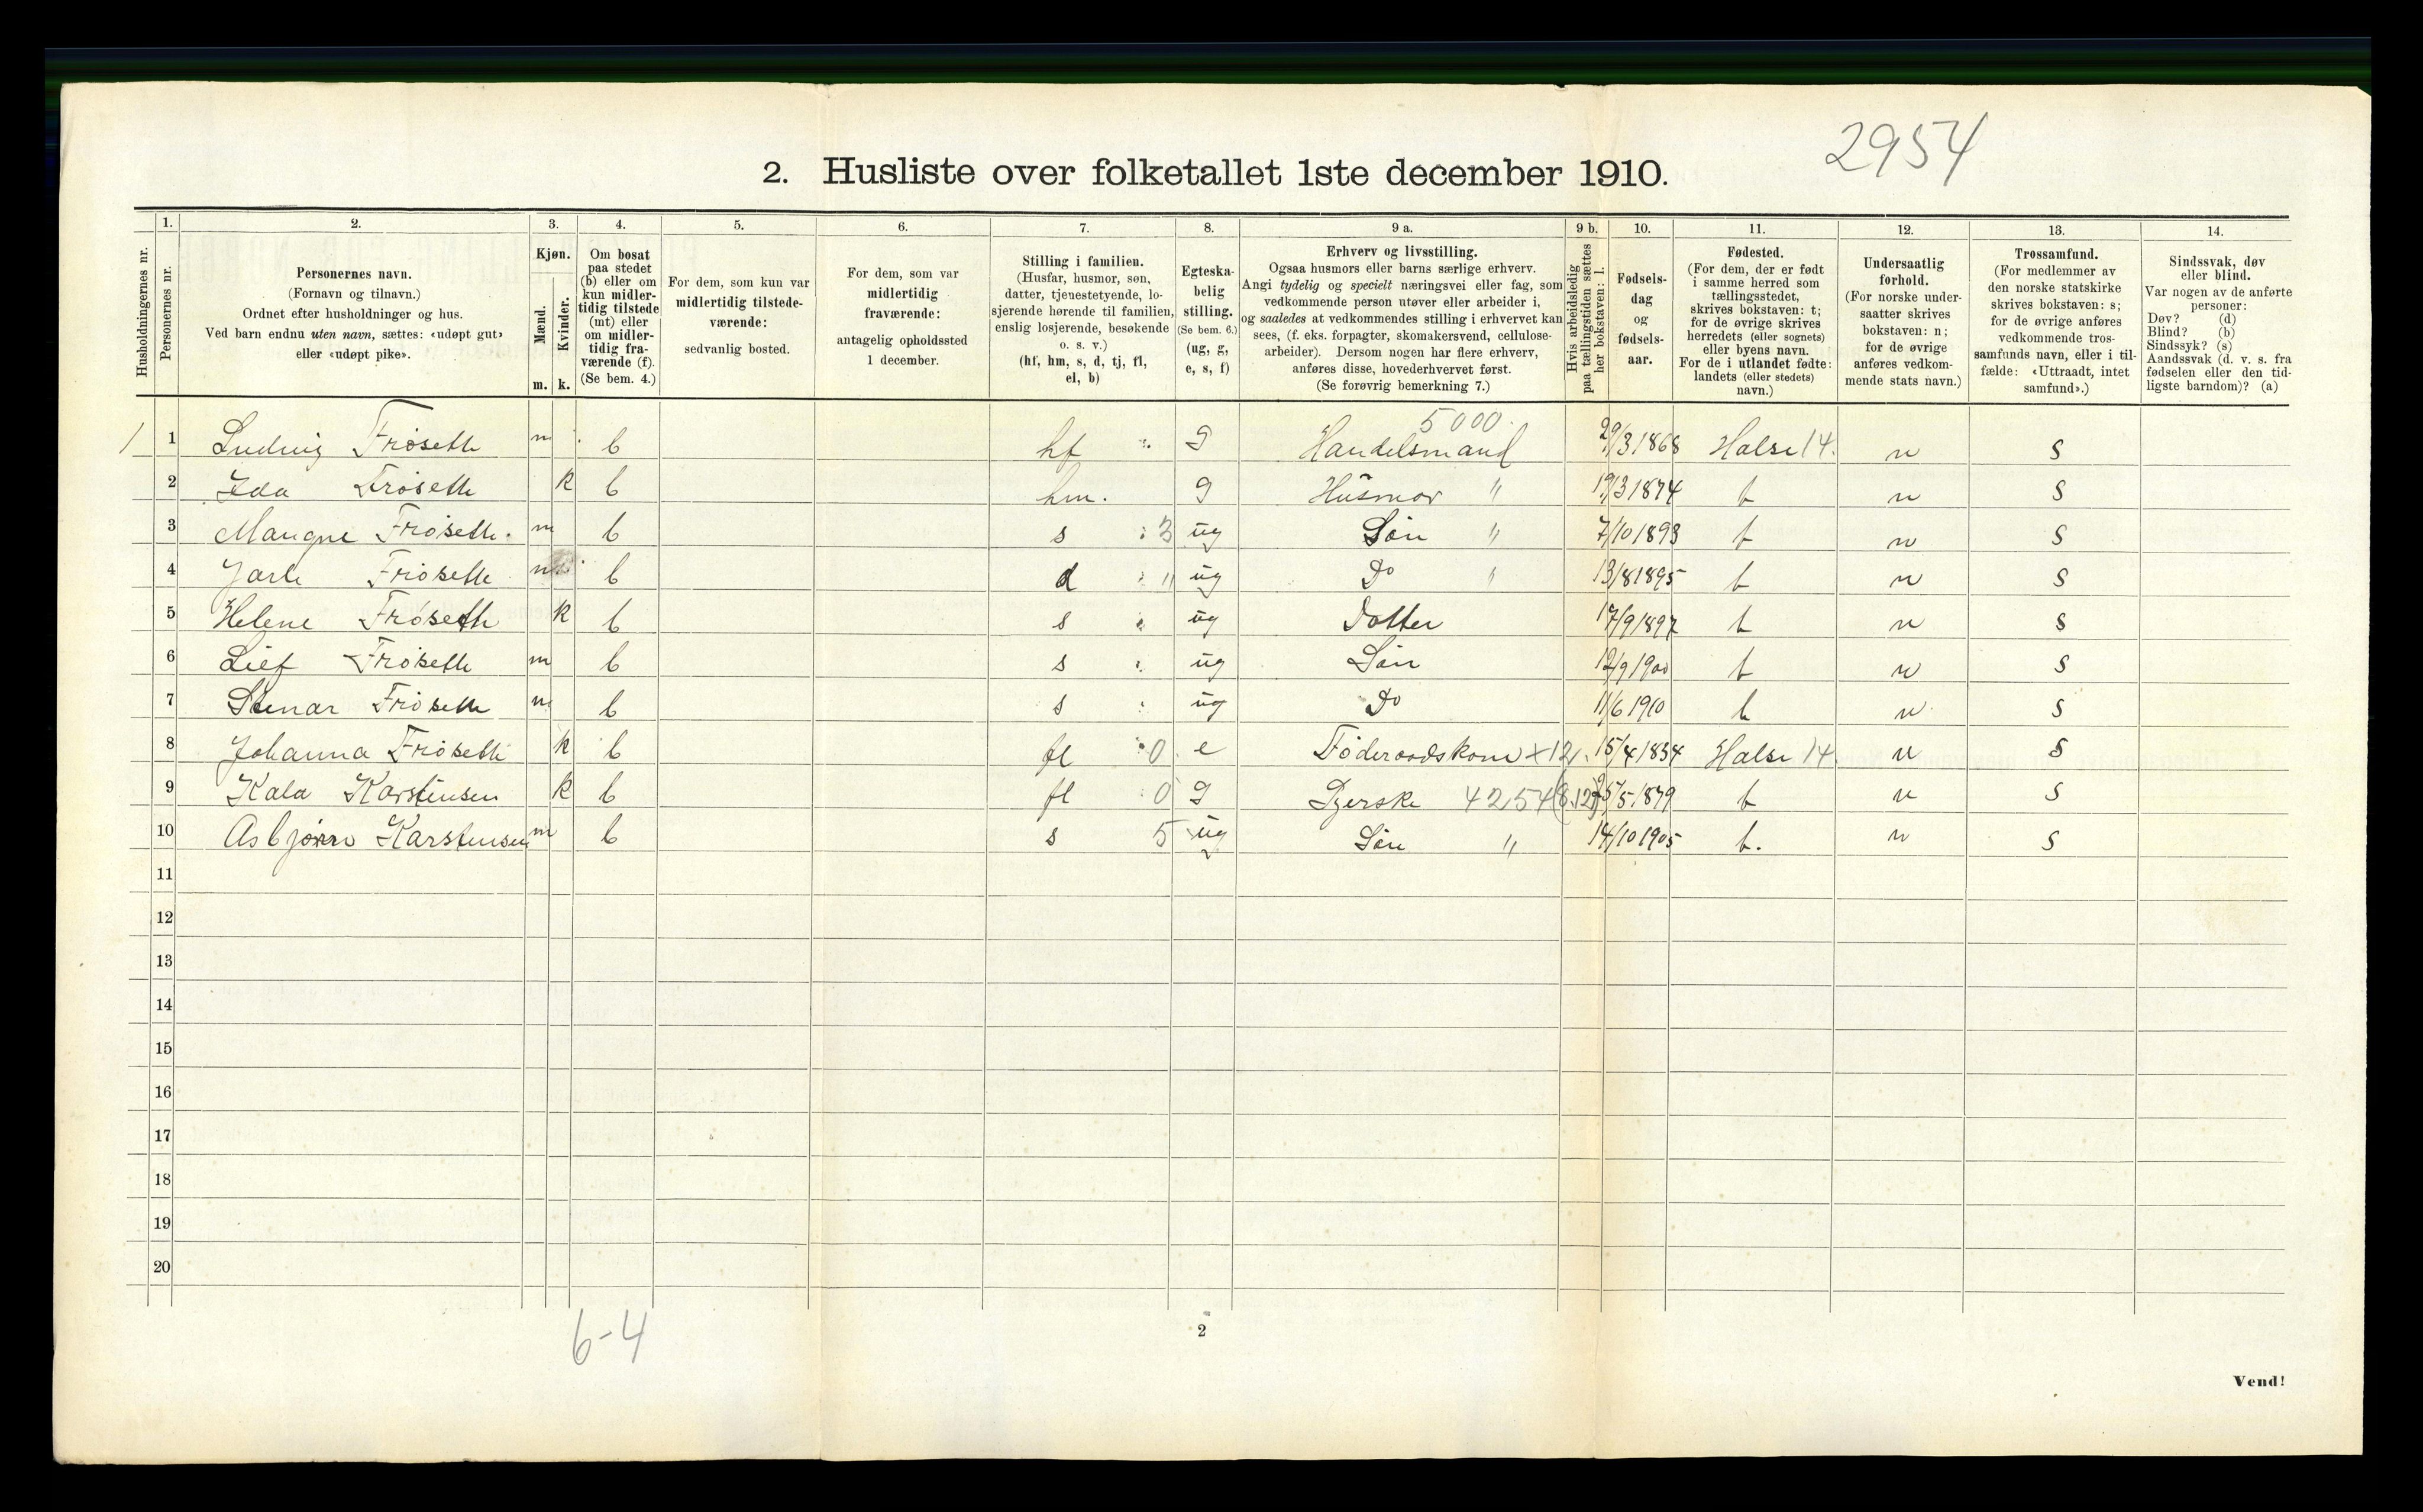 2954
2. Husliste over folketallet 1ste december 1910.
Husholdningernes nr.
1.
Personernes nr.
2.
Personernes navn.
(Fornavn og tilnavn.)
Ordnet efter husholdninger og hus.
Ved barn endnu uten navn, sættes: «udøpt gut»
eller «udøpt pike».
3.
Kjøn.
Mænd.
Kvinder.
m. k.
4.
Om bosat
paa stedet
(b) eller om
kun midler-
tidig tilstede
(mt) eller
om midler-
tidig fra-
værende (f).
(Se bem. 4.)
5.
For dem, som kun var
midlertidig tilstede-
værende:
sedvanlig bosted.
6.
For dem, som var
midlertidig
fraværende:
antagelig opholdssted
1 december.
7.
Stilling i familien.
(Husfar, husmor, søn,
datter, tjenestetyende, lo-
sjerende hørende til familien,
enslig losjerende, besøkende
o. s. v.)
(hf, hm, s, d, tj, fl,
el, b)
8.
Egteska-
belig
stilling.
(Se bem. 6.)
(ug, g,
e, s, f)
9 a.
Erhverv og livsstilling.
Ogsaa husmors eller barns særlige erhverv.
Angi tydelig og specielt næringsvei eller fag, som
vedkommende person utøver eller arbeider i,
og saaledes at vedkommendes stilling i erhvervet kan
sees, (f. eks. forpagter, skomakersvend, cellulose-
arbeider). Dersom nogen har flere erhverv,
anføres disse, hovederhvervet først.
(Se forøvrig bemerkning 7.)
9 b.
Hvis arbeidsledig
paa tællingstiden sættes
her bokstaven: l.
10.
Fødsels-
dag
og
fødsels-
aar.
11.
Fødested.
(For dem, der er født
i samme herred som
tællingsstedet,
skrives bokstaven: t;
for de øvrige skrives
herredets (eller sognets)
eller byens navn.
For de i utlandet fødte:
landets (eller stedets)
navn.)
12.
Undersaatlig
forhold.
(For norske under-
saatter skrives
bokstaven: n;
for de øvrige
anføres vedkom-
mende stats navn.)
13.
Trossamfund.
(For medlemmer av
den norske statskirke
skrives bokstaven: s;
for de øvrige anføres
vedkommende tros-
samfunds navn, eller i til-
fælde: «Uttraadt, intet
samfund».)
14.
Sindssvak, døv
eller blind.
Var nogen av de anførte
personer:
Døv? (d)
Blind? (b)
Sindssyk? (s)
Aandssvak (d. v. s. fra
fødselen eller den tid-
ligste barndom)? (a)
5000
1 1 Ludvig Frøseth m b hf g Handelsmand 29/3 1868 Halse 14. n s
2 Ida Frøseth k b hm. g Husmor " 19/3 1874 t n s
3 Mangne Frøseth. m b s 3 ug Søn " 7/10 1893 t n s
4 Jarle Frøseth m b d " ug Do " 13/8 1895 t n s
5 Helene Frøseth k b s ug Dotter 17/9 1897 t n s
6 Lief Frøseth m b s ug Søn 12/9 1900 t n s
7 Stenar Frøseth m b s ug Do 11/6 1910 t n s
8 Johanna Frøseth k b fl 0 e Føderaadskone x12. 15/4 1834 Halse 14 n s
9 Kala Karstensen k b fl 0 g 4254 (8.12) 25/5 1879 t n s
10 Asbjørn Karstensen m b s 5 ug Søn " 14/10 1905 t. n s
11
12
13
14
15
16
17
18
19
20
6-4
2
Vend!